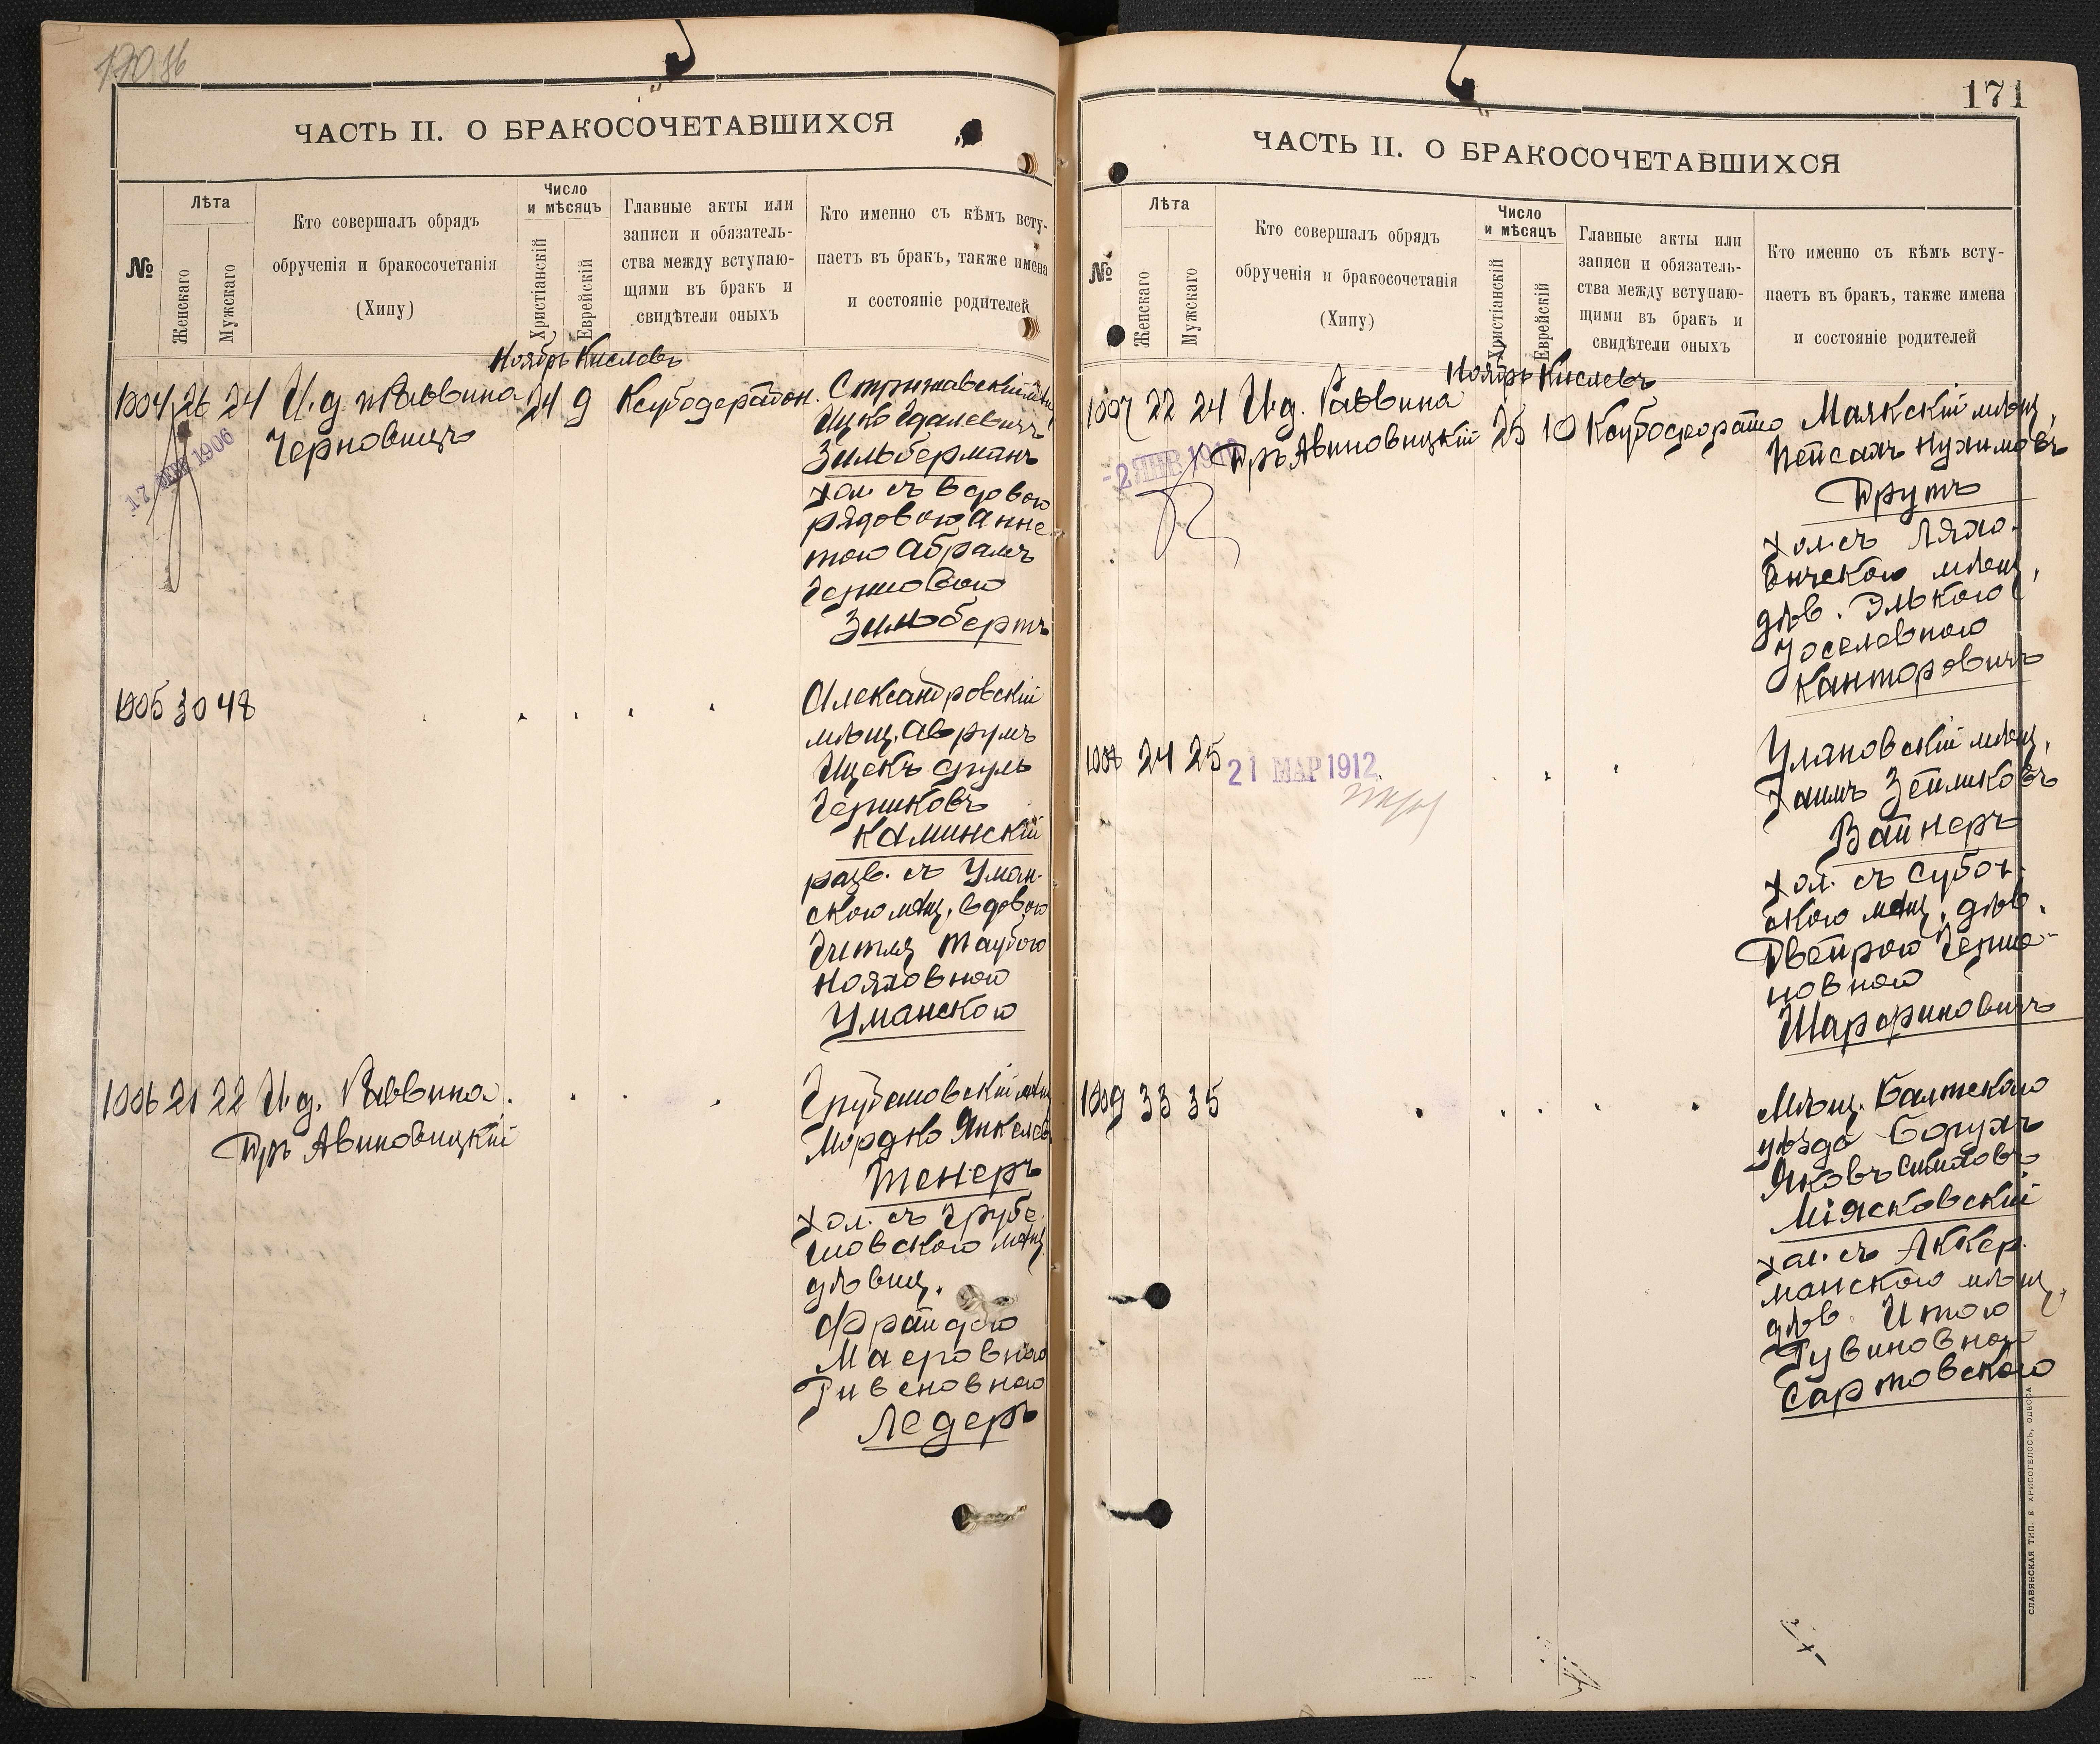 ЧАСТЬ II. О БРАКОСОЧЕТАВШИХСЯ
№
Лѣта
Женскаго
Мужскаго
Кто совершалъ обрядъ
обрученія и бракосочетанія
(Хипу)
Число
и мѣсяцъ
Христіанскій
Еврейскій
Главные акты или
записи и обязатель-
ства между вступаю-
щими въ бракъ и
свидѣтели оныхъ
Кто именно съ кѣмъ всту-
паетъ въ бракъ, также имена
и состояніе родителей
Ноябрь Кислевъ
1004 26 24 И.д. Раввина 24 9
Черновицъ
17 1906
Стрижавскій мѣщ.
Ицко Идалевичъ
Зильберманъ
хол. съ вдовою
рядовою Анне
тою Абрамъ
Гершовою
Зильбертъ
1005 30 48
Александровскій
мѣщ. Аврумъ
Ицекъ Сруль
Гершковъ
Каминскій
разв. съ Уман-
скою мѣщ. вдовою
Гитля Таубою
Нояховною
Уманскою
1006 21 22 И.д. Раввина
Д-ръ Авиновицкій
Грубешовскій мѣщ
Мордко Янкелев.
Тенеръ
хол. съ Грубе
шовскою мѣщ
дѣвиц.
Фрайдою
Маеровною
Ривеновною
Ледеръ
171
ЧАСТЬ II. О БРАКОСОЧЕТАВШИХСЯ
№
Лѣта
Женскаго
Мужскаго
Кто совершалъ обрядъ
обрученія и бракосочетанія
(Хипу)
Число
и мѣсяцъ
Христіанскій
Еврейскій
Главные акты или
записи и обязатель-
ства между вступаю-
щими въ бракъ и
свидѣтели оныхъ
Кто именно съ кѣмъ всту-
паетъ въ бракъ, также имена
и состояніе родителей
Ноябрь Кислевъ
1007 22 24 И.д. Раввина
Д-ръ Авиновицкій 25 10
Маякскій мѣщ.
Пейсахъ Нухимовъ
Трутъ
хол. съ Ляхо-
вичскою мѣщ.
дѣв. Элькою
Іоселевною
Канторовичъ
1008 24 25
21 МАР 1912
Улановскій мѣщ.
Хаимъ Зейликовъ
Вайнеръ
хол. съ Субот.
скою мѣщ. дѣв.
Двейрою Гершо-
новною
Шарфриновичъ
1009 33 35
Мѣщ. Балтскаго
уѣзда Борухъ
Яковъ Симховъ
Міясковскій
хол. съ Аккер.
манскою мѣщ
дѣв. Итою
Рувиновною
Сартовскою
СЛАВЯНСКАЯ ТИП. Е. ХРИСОГЕЛОСЪ, ОДЕССА